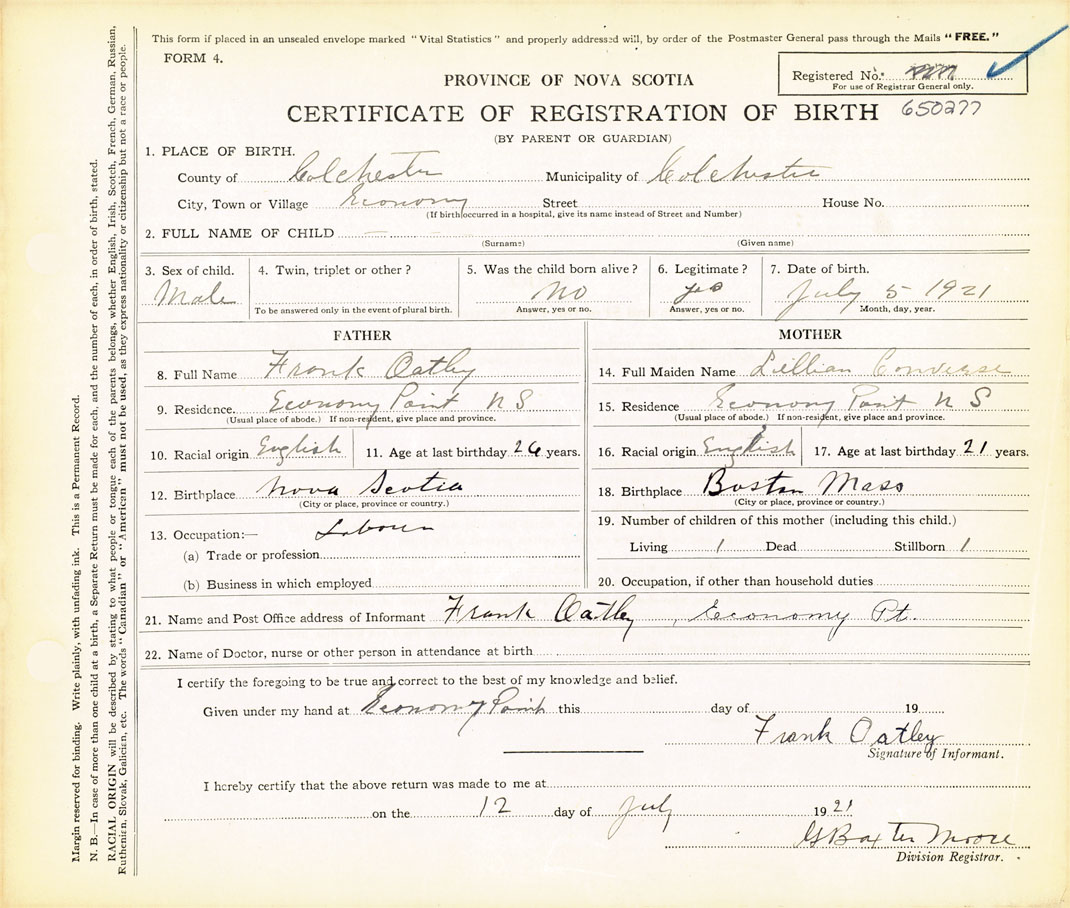 This form if placed in an unsealed envelope marked "Vital Statistics" and properly addressed will, by order of the Postmaster General pass through the Mails "FREE."
FORM 4.
Registered No.
For use of Registrar General only.
PROVINCE OF NOVA SCOTIA
CERTIFICATE OF REGISTRATION OF BIRTH 650277
(BY PARENT OR GUARDIAN)
1. PLACE OF BIRTH.
County of Colchester Municipality of Colchester
City, Town or Village Economy Street House No.
(If birth occurred in a hospital, give its name instead of Street and Number)
2. FULL NAME OF CHILD
(Surname) (Given name)
3. Sex of child. 4. Twin, triplet or other? 5. Was the child born alive? 6. Legitimate? 7. Date of birth.
Male No yes July 5 1921
To be answered only in the event of plural birth. Answer, yes or no. Answer, yes or no. Month, day, year.
FATHER MOTHER
8. Full Name Frank Oatley 14. Full Maiden Name Lillian Converse
9. Residence. Economy Point N S 15. Residence Economy Point N S
(Usual place of abode.) If non-resident, give place and province. (Usual place of abode.) If non-resident, give place and province.
10. Racial origin English 11. Age at last birthday 26 years. 16. Racial origin English 17. Age at last birthday 21 years.
12. Birthplace Nova Scotia 18. Birthplace Boston Mass
(City or place, province or country.) (City or place, province or country.)
13. Occupation:— Labourer 19. Number of children of this mother (including this child.)
(a) Trade or profession Living 1 Dead Stillborn 1
(b) Business in which employed 20. Occupation, if other than household duties
21. Name and Post Office address of Informant Frank Oatley, Economy Pt.
22. Name of Doctor, nurse or other person in attendance at birth
I certify the foregoing to be true and correct to the best of my knowledge and belief.
Given under my hand at Economy Point this day of 19
Frank Oatley
Signature of Informant.
I hereby certify that the above return was made to me at
on the 12 day of July 1921
G Baxter Moore
Division Registrar.
Margin reserved for binding. Write plainly, with unfading ink. This is a Permanent Record.
N. B.—In case of more than one child at a birth, a Separate Return must be made for each, and the number of each, in order of birth, stated.
RACIAL ORIGIN will be described by stating to what people or tongue each of the parents belongs, whether English, Irish, Scotch, French, German, Russian,
Ruthenian, Slovak, Galician, etc. The words "Canadian" or "American" must not be used, as they express nationality or citizenship but not a race or people.